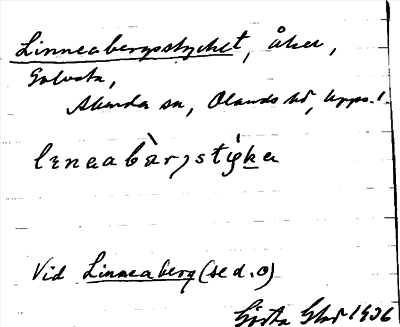 Linneabergsstycket, åker,
Golvsta,
Alunda sn, Olands hd, Upps.l.
lɩneabær̀jstýka
Vid Linneaberg (se d.o)
Gösta 1936